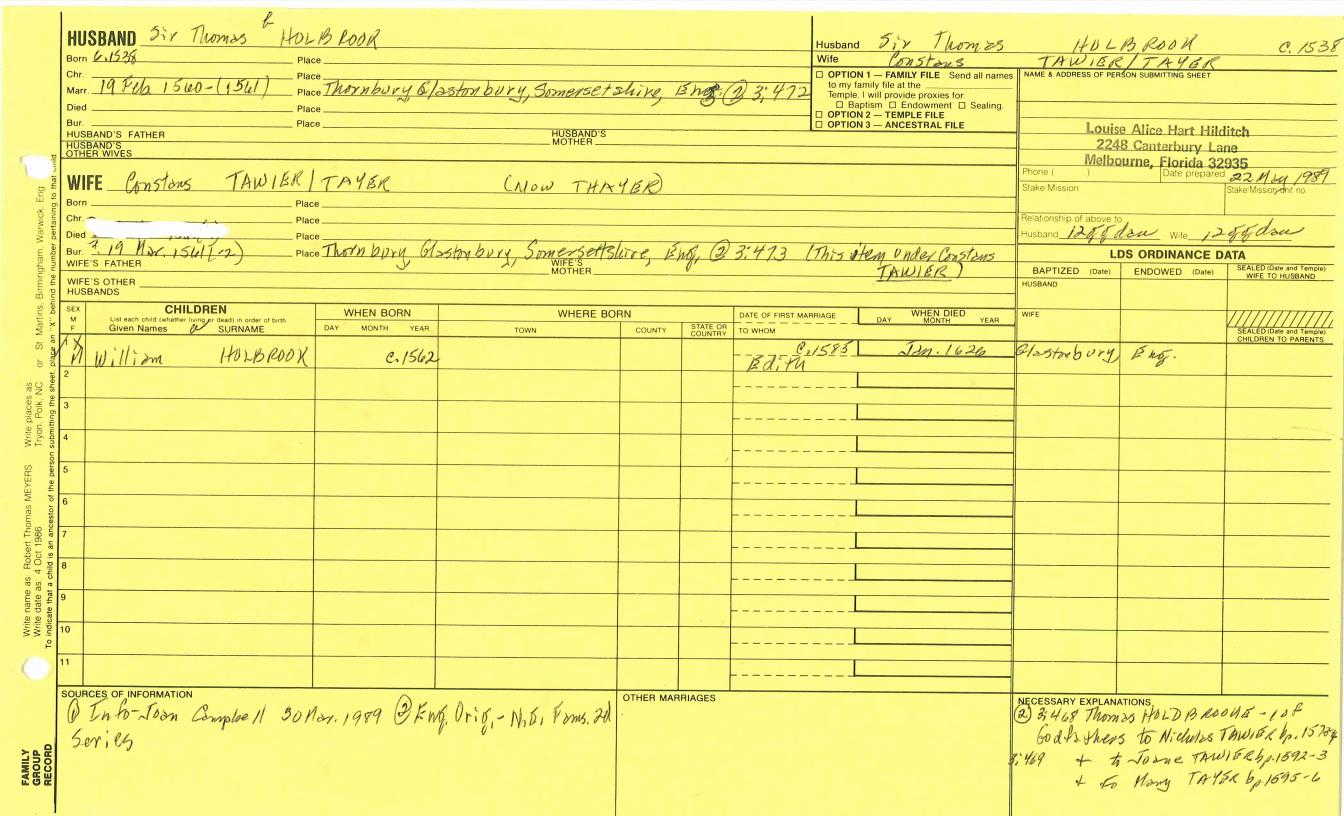 b
HUSBAND Sir Thomas HOLBROOK
Born c.1538 Place
Chr. Place
Marr. 19 Feb 1560-(1561) Place Thornbury, Glastonbury, Somersetshire, Eng. (2) 3:472
Died Place
Bur. Place
HUSBAND'S FATHER HUSBAND'S MOTHER
HUSBAND'S OTHER WIVES
Husband Sir Thomas HOLBROOK c.1538
Wife Constans TAWIER/TAYER
☐ OPTION 1 — FAMILY FILE Send all names
to my family file at the
Temple. I will provide proxies for:
☐ Baptism ☐ Endowment ☐ Sealing.
☐ OPTION 2 — TEMPLE FILE
☐ OPTION 3 — ANCESTRAL FILE
NAME & ADDRESS OF PERSON SUBMITTING SHEET
Louise Alice Hart Hilditch
2248 Canterbury Lane
Melbourne, Florida 32935
Phone ( ) Date prepared 22 May 1989
Stake Mission Stake/Mission unit no.
Relationship of above to
Husband 12 gg dau Wife 12 gg dau
WIFE Constans TAWIER/TAYER (NOW THAYER)
Born Place
Chr. Place
Died Place
Bur. 19 Mar. 1561(-2) Place Thornbury, Glastonbury, Somersetshire, Eng. (2) 3:473 (This item under Constans
TAWIER)
WIFE'S FATHER WIFE'S MOTHER
WIFE'S OTHER HUSBANDS
LDS ORDINANCE DATA
BAPTIZED (Date) ENDOWED (Date) SEALED (Date and Temple) WIFE TO HUSBAND
HUSBAND
WIFE
SEALED (Date and Temple) CHILDREN TO PARENTS
SEX M F
CHILDREN
List each child (whether living or dead) in order of birth
Given Names SURNAME
WHEN BORN
DAY MONTH YEAR
WHERE BORN
TOWN COUNTY STATE OR COUNTRY
DATE OF FIRST MARRIAGE
TO WHOM
WHEN DIED
DAY MONTH YEAR
1 X
M William HOLBROOK c.1562 c.1585 Jan. 1626 Glastonbury, Eng.
Edith
2
3
4
5
6
7
8
9
10
11
SOURCES OF INFORMATION
(1) Info-Joan Campbell 30 Mar. 1989 (2) Eng. Orig.- N.E. Fams. 2d
Series
OTHER MARRIAGES
NECESSARY EXPLANATIONS
(2) 3:468 Thomas HOLDBROOKE - 1 of
Godfathers to Nicholas TAWIER bp.
3:469 + to Joane TAWIER bp. 1592-3
+ to Mary TAYER bp 1595-6
Write name as Robert Thomas MEYERS Write places as Tryon, Polk, NC or St Martins, Birmingham, Warwick, Eng
Write date as 4 Oct 1986
To indicate that a child is an ancestor of the person submitting the sheet, place an "X" behind the number pertaining to that child
FAMILY
GROUP
RECORD